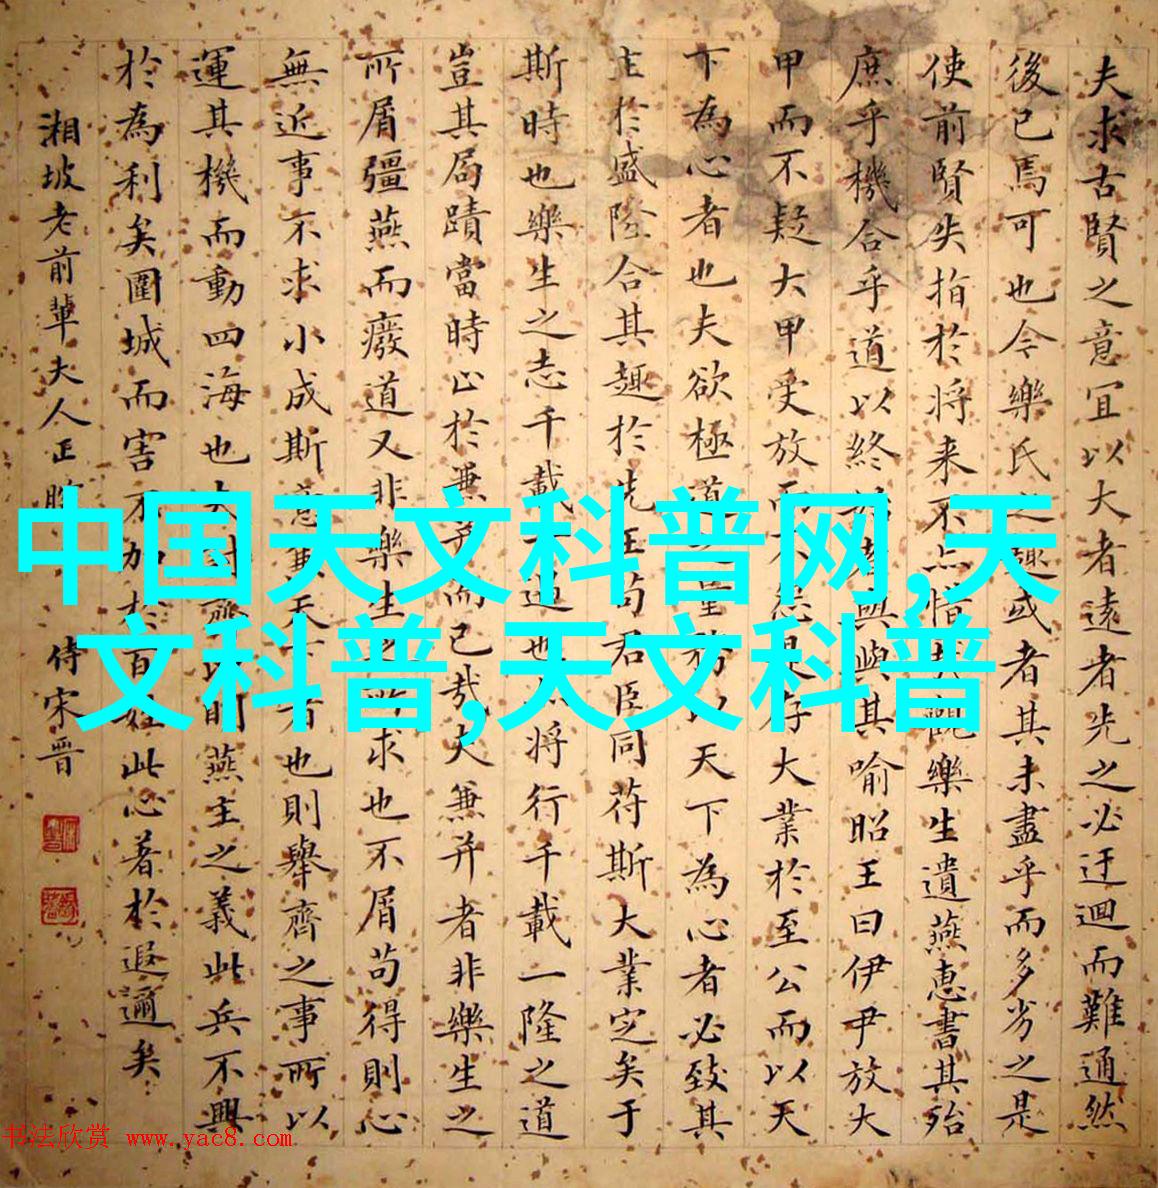 夫求古賢之意宜以大者遠者先之必迂迴而難通然
後已焉可也今樂氏之趣或者其未盡乎而多劣之是
使前賢失指於將来不亦惜哉觀樂生遺燕惠書其殆
庶乎機合乎道以終始者與其喻昭王曰伊尹放大
甲而不疑大甲受放而不怨是存大業於至公而以天
下為心者也夫欲極道之量務以天下為心者必致其
主於盛隆合其趣於先王苟君臣同苻斯大業定矣于
斯時也樂生之志千載一遇也亦將行千載一隆之道
豈其局蹟當時止於兼并而已哉夫兼并者非樂生之
所屑彊燕而廢道又非樂生之所求也不屑苟得則心
無近事不求小成斯意兼天下者也則舉齊之事所以
運其機而動四海也夫討齊以明燕主之義此兵不興
於為利矣圍城而害不加於百姓此心著於遐邇矣
湘坡老前輩夫人正 侍宋晋
中国天文科普网,天
文科普,天文科普
书法欣赏 www.yac8.com